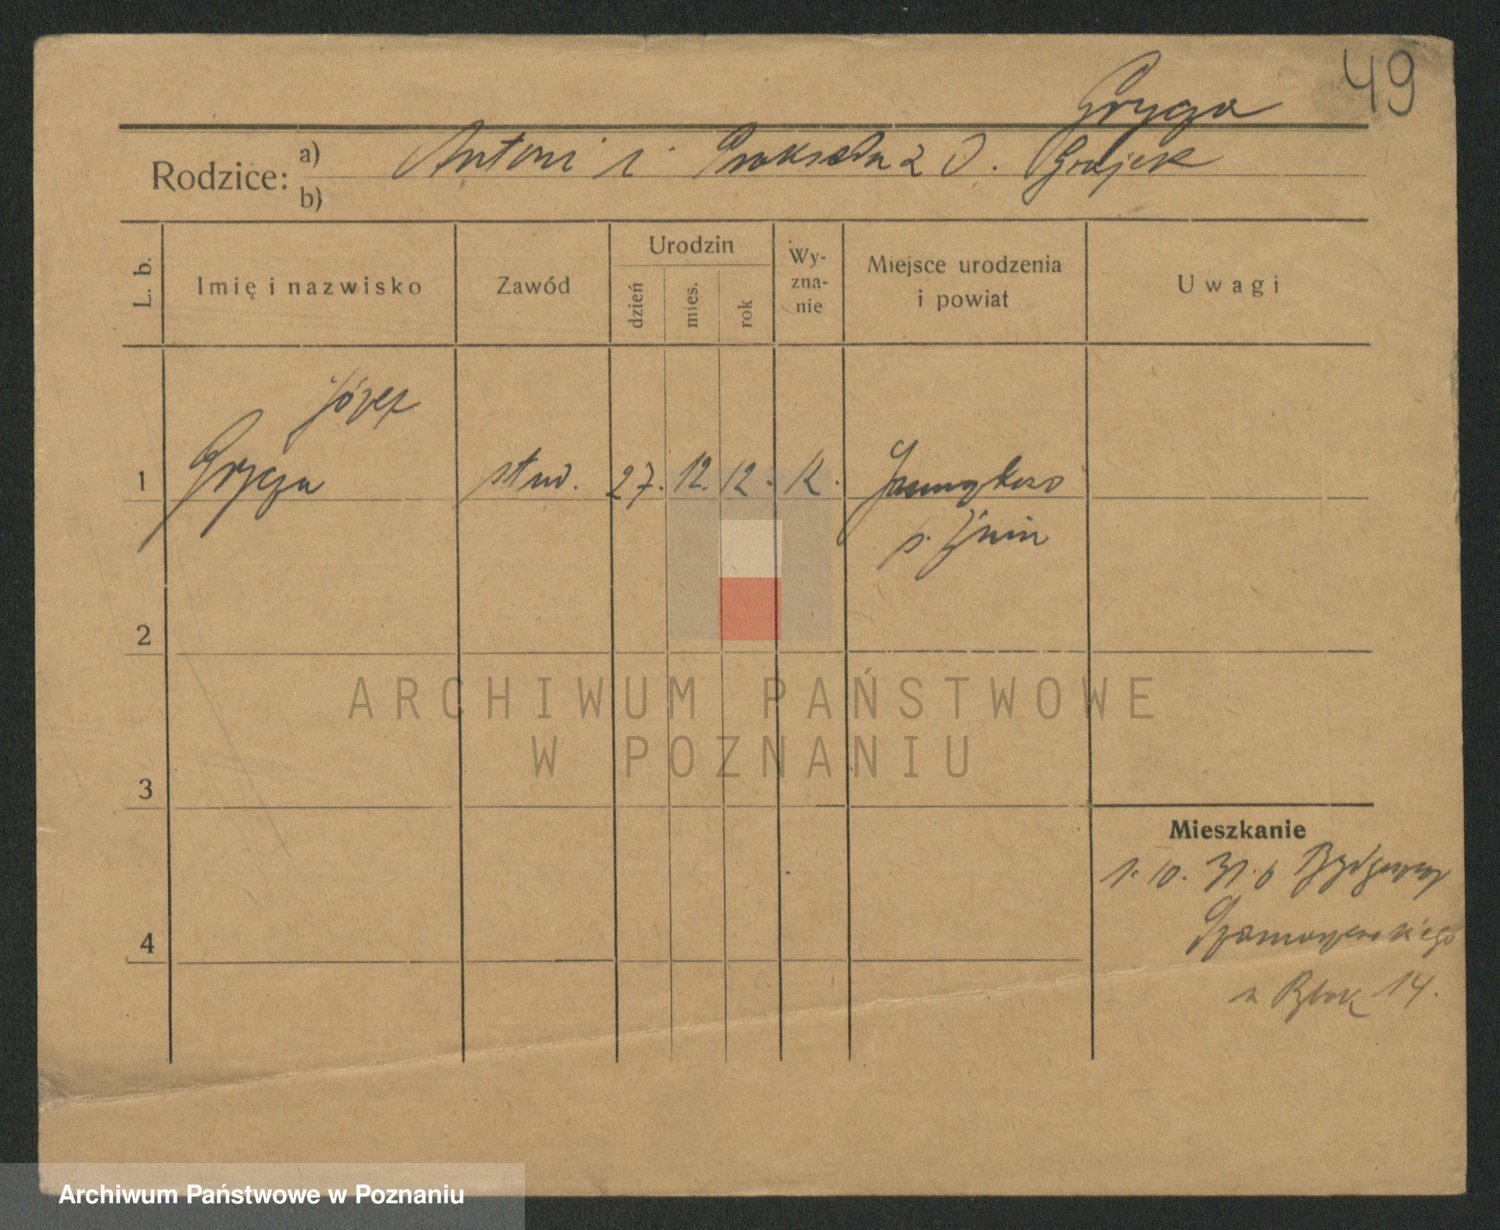 49
Gryga
Rodzice: a) b) Antoni i Prakseda z d. Grajek
L. b.
Imię i nazwisko
Zawód
Urodzin
dzień
mies.
rok
Wy-
zna-
nie
Miejsce urodzenia
i powiat
Uwagi
Józef
1 Gryga stud. 27. 12. 12. k.
p. Żnin
2
ARCHIWUM PAŃSTWOWE
W POZNANIU
3
Mieszkanie
1. 10. 31. Bydgoszcz
4
Blok 14.
Archiwum Państwowe w Poznaniu